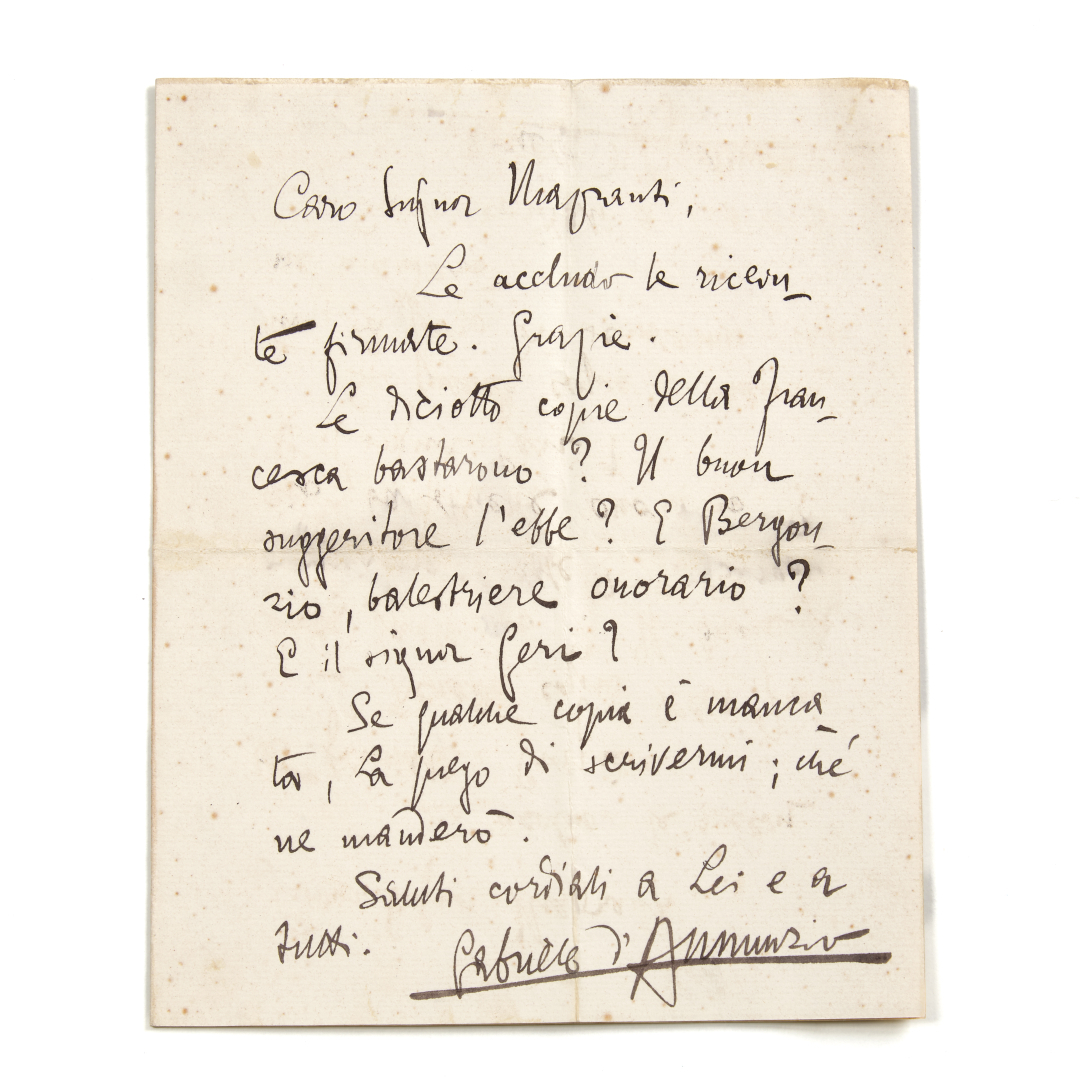 Caro Signor Mafranti,
Le accludo le ricevu-
te firmate. Grazie.
Le diciotto copie della Fran-
cesca bastarono? Il buon
suggeritore l'ebbe? E Bergon-
zio, balestriere onorario?
E il signor Geri?
Se qualche copia è manca
ta, La prego di scrivermi; ché
ne manderò.
Saluti cordiali a Lei e a
tutti.
Gabriele d'Annunzio